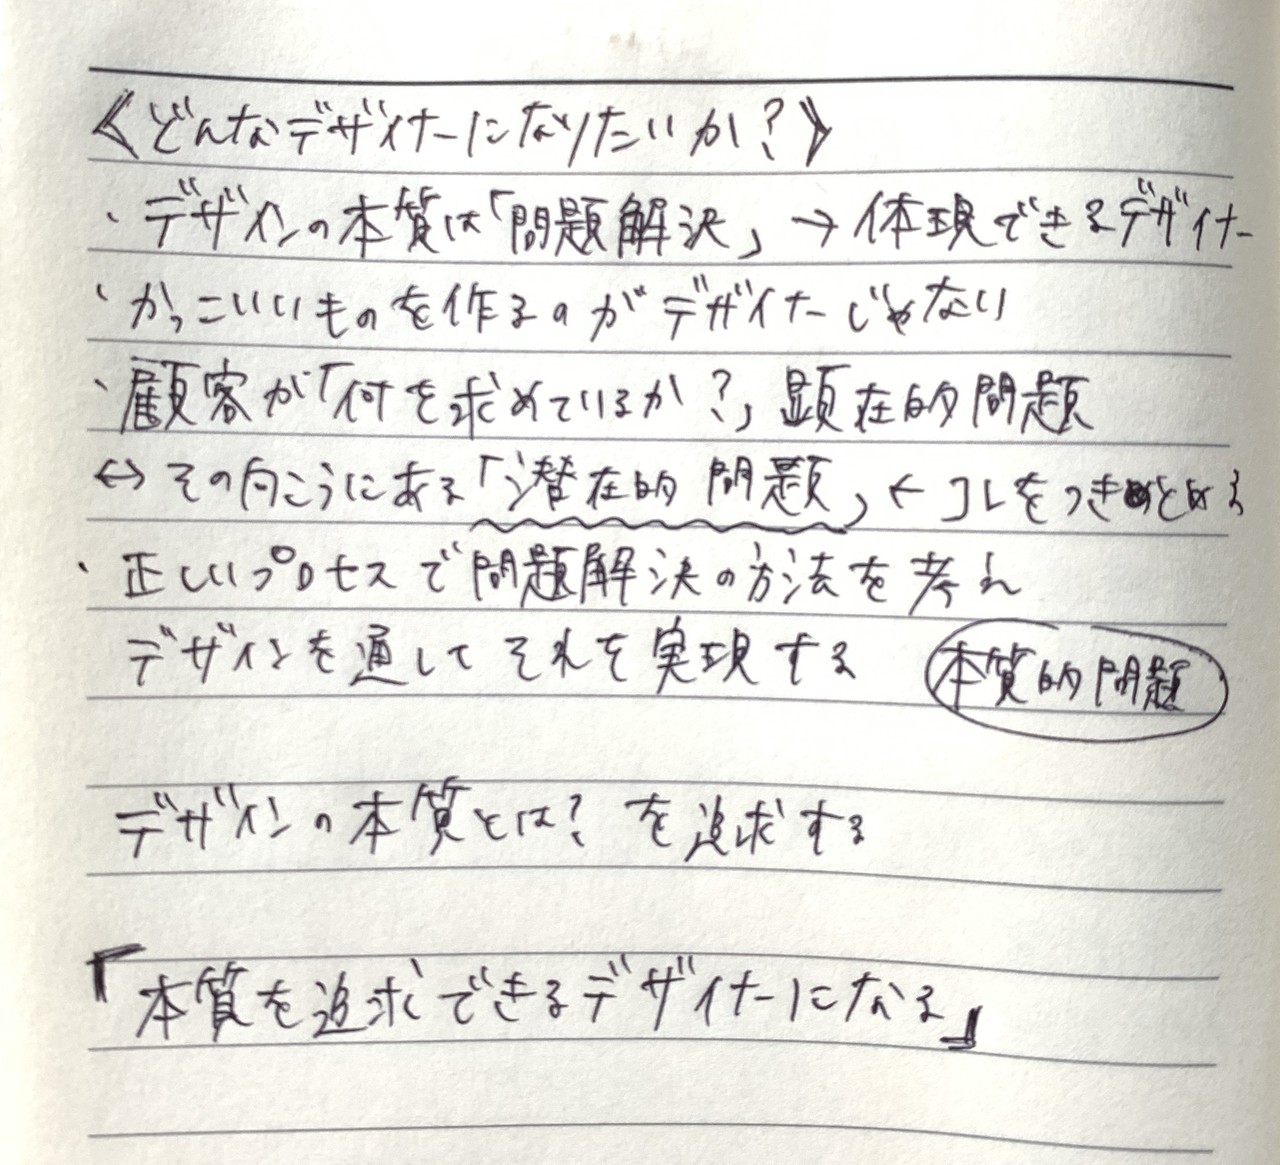 《どんなデザイナーになりたいか?》
・デザインの本質は「問題解決」→体現できるデザイナー
・かっこいいものを作るのがデザイナーじゃない
・顧客が「何を求めているか?」顕在的問題
↔その向こうにある「潜在的問題」←コレをつきとめる
・正しいプロセスで問題解決の方法を考え
デザインを通してそれを実現する
本質的問題
デザインの本質とは?を追求する
『本質を追求できるデザイナーになる』